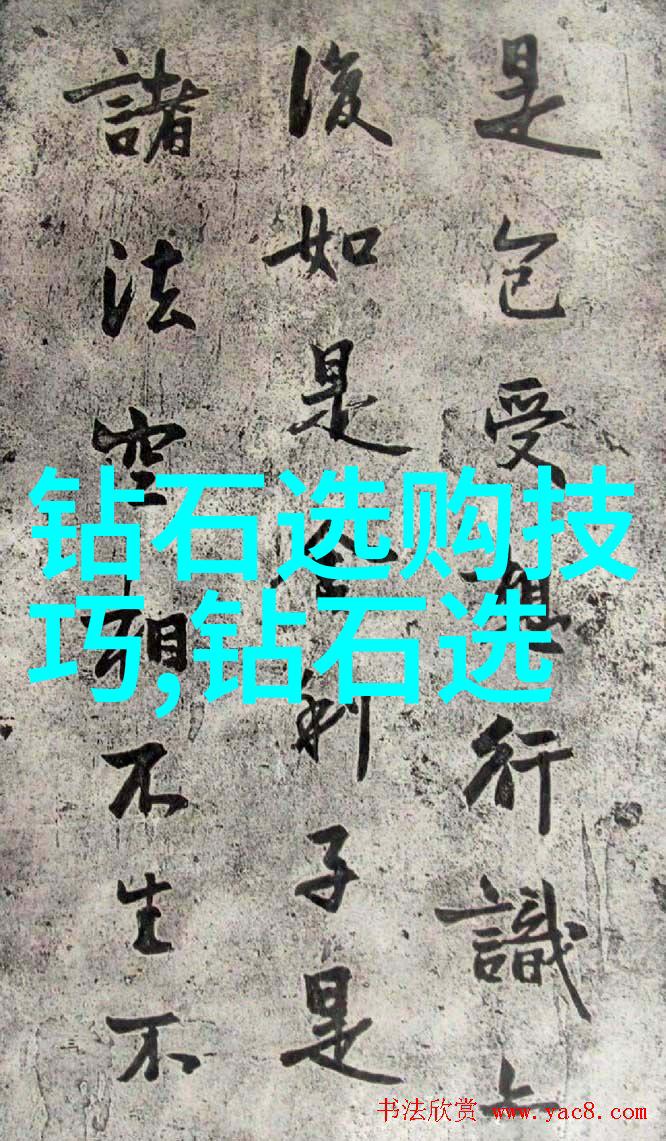 是色受想行識
復如是舍利子是
諸法空相不生不
钻石选购技
巧,钻石选
书法欣赏 www.yac8.com